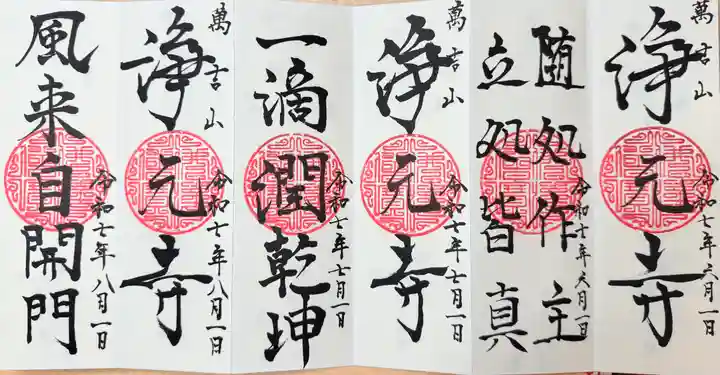 萬吉山
浄元寺
令和七年六月一日
随処作主
立処皆真
令和七年六月一日
萬吉山
浄元寺
令和七年七月一日
一滴潤乾坤
令和七年七月一日
萬吉山
浄元寺
令和七年八月一日
風来自開門
令和七年八月一日